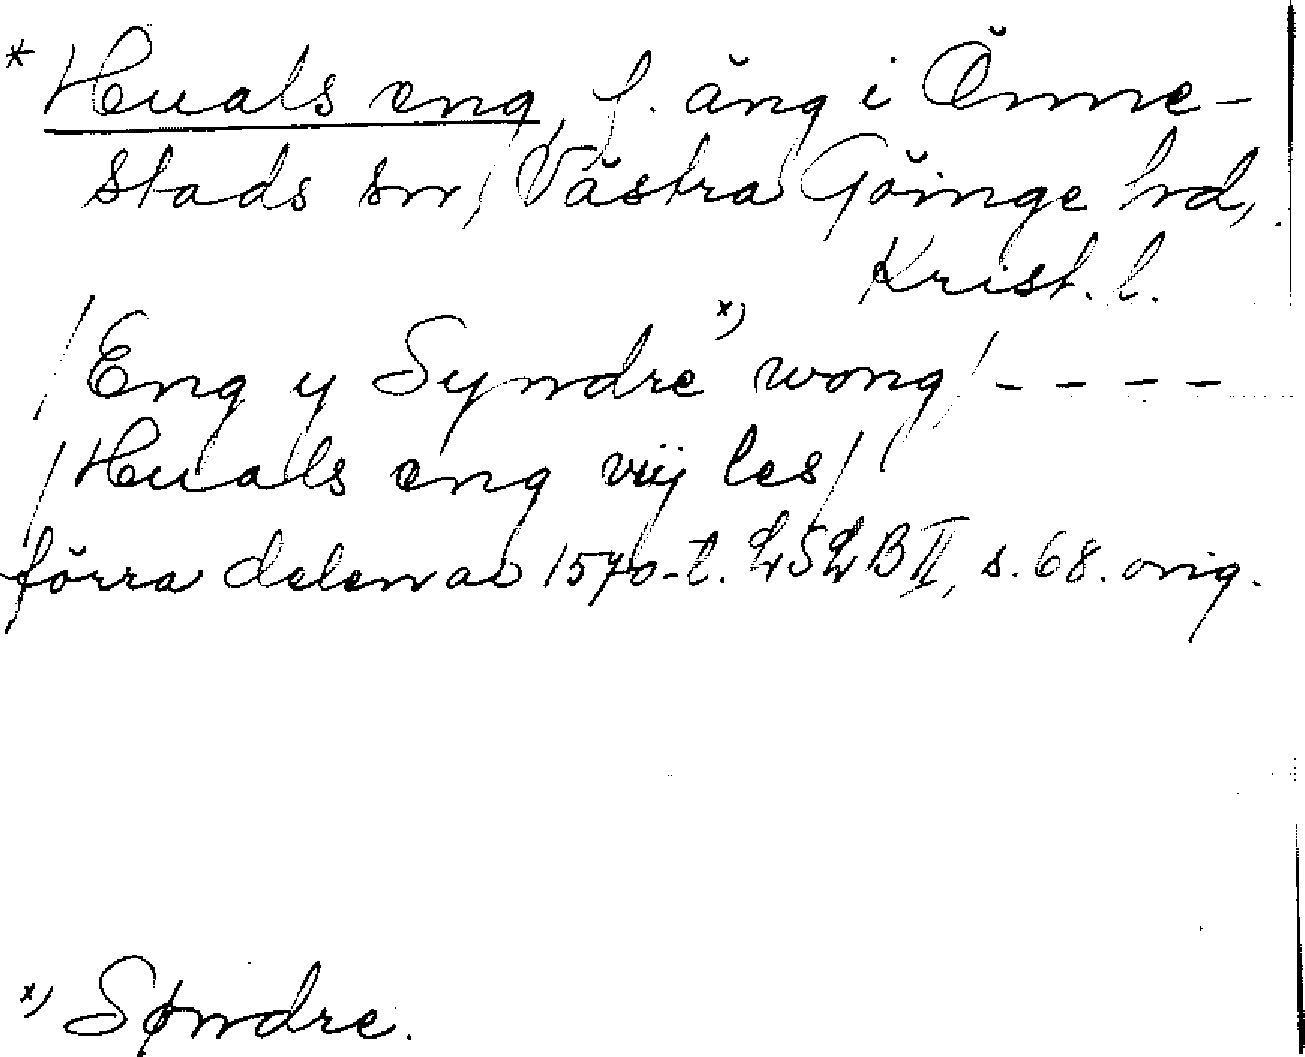 * Huals eng, f. äng i Önne-
stads sn, Västra Göinge hd,
Krist. l.
/Eng y Syndre x) wong/ - - - -
/Huals eng vij les/
förra delen av 1570-t. LSLB II, s. 68. orig.
x) Søndre.